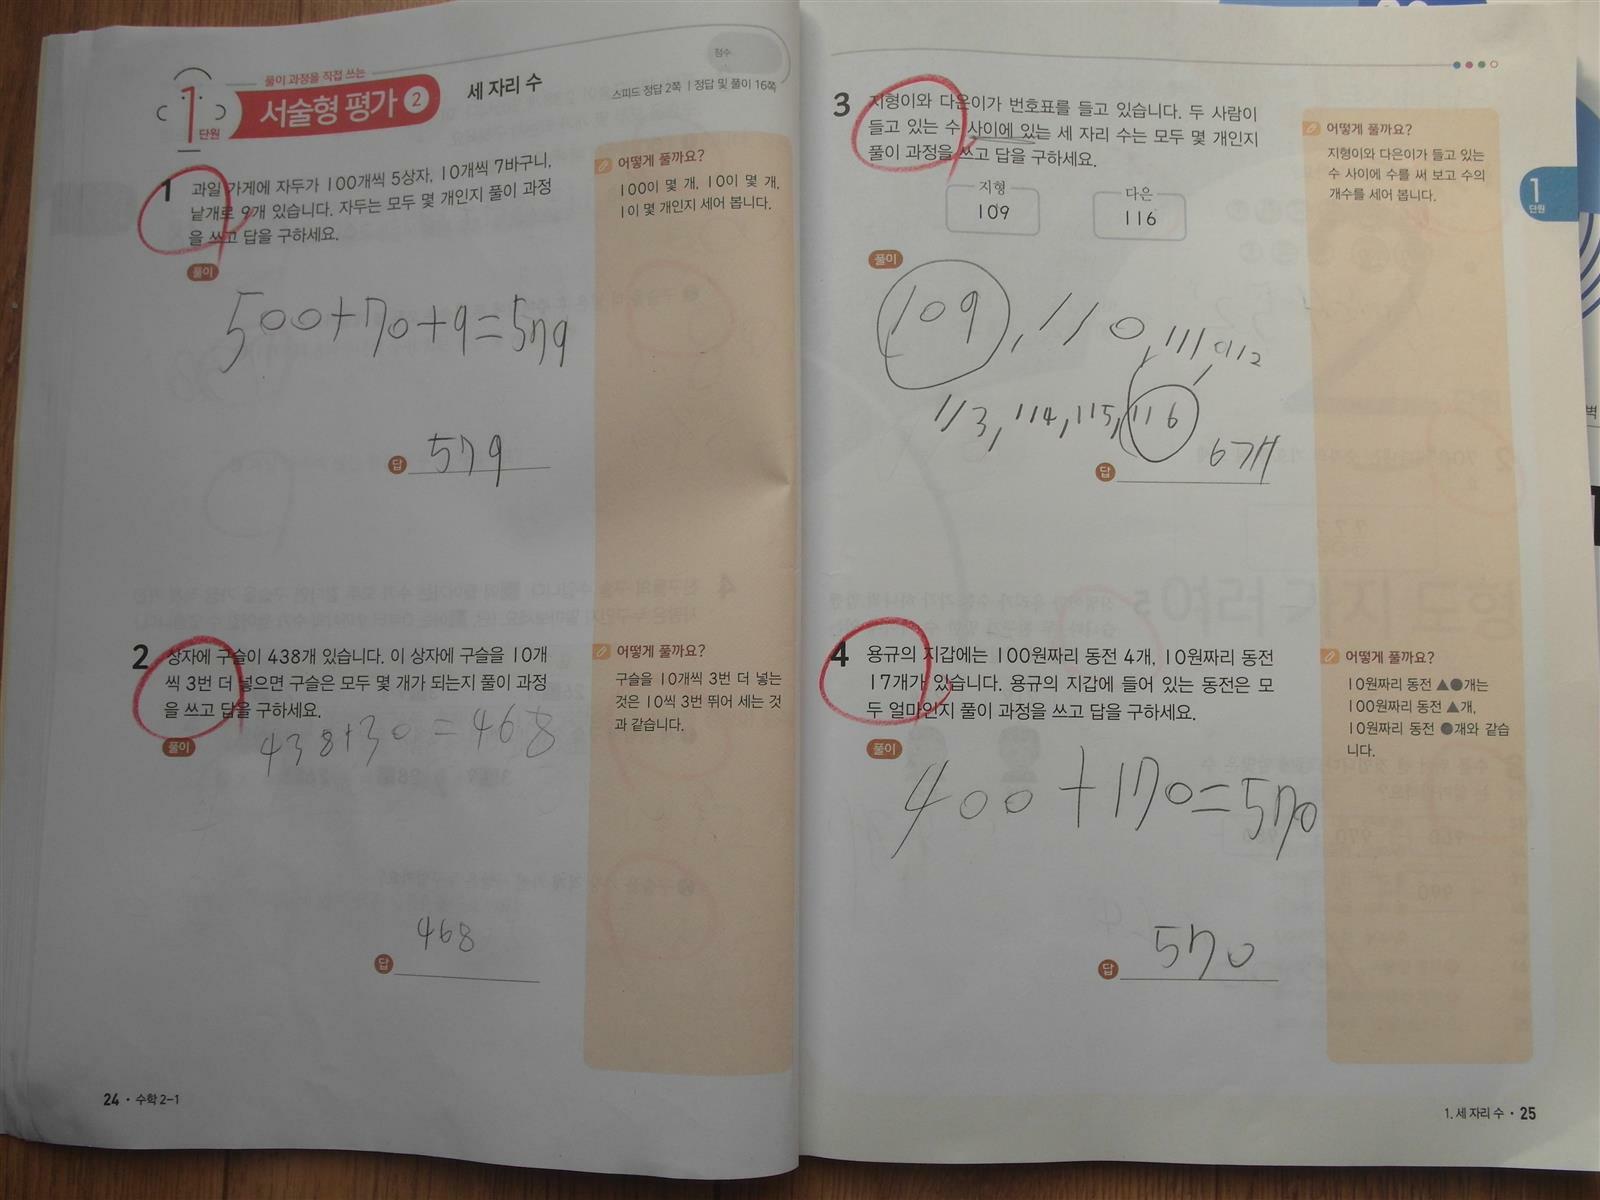 풀이 과정을 직접 쓰는
1
단원
서술형 평가 2
세 자리 수
점수
스피드 정답 2쪽 | 정답 및 풀이 16쪽
1
과일 가게에 자두가 100개씩 5상자, 10개씩 7바구니,
낱개로 9개 있습니다. 자두는 모두 몇 개인지 풀이 과정
을 쓰고 답을 구하세요.
풀이
500+70+9=579
답 579
어떻게 풀까요?
100이 몇 개, 10이 몇 개,
1이 몇 개인지 세어 봅니다.
2
상자에 구슬이 438개 있습니다. 이 상자에 구슬을 10개
씩 3번 더 넣으면 구슬은 모두 몇 개가 되는지 풀이 과정
을 쓰고 답을 구하세요.
풀이
438+30=468
468
답
어떻게 풀까요?
구슬을 10개씩 3번 더 넣는
것은 10씩 3번 뛰어 세는 것
과 같습니다.
24 · 수학 2-1
3
지형이와 다은이가 번호표를 들고 있습니다. 두 사람이
들고 있는 수 사이에 있는 세 자리 수는 모두 몇 개인지
풀이 과정을 쓰고 답을 구하세요.
지형
109
다은
116
풀이
109, 110, 111, 112
113, 114, 115, 116
6개
답
어떻게 풀까요?
지형이와 다은이가 들고 있는
수 사이에 수를 써 보고 수의
개수를 세어 봅니다.
1
단원
4
용규의 지갑에는 100원짜리 동전 4개, 10원짜리 동전
17개가 있습니다. 용규의 지갑에 들어 있는 동전은 모
두 얼마인지 풀이 과정을 쓰고 답을 구하세요.
풀이
400+170=570
570
답
어떻게 풀까요?
10원짜리 동전 ▲●개는
100원짜리 동전 ▲개,
10원짜리 동전 ●개와 같습
니다.
1. 세 자리 수 · 25
벽